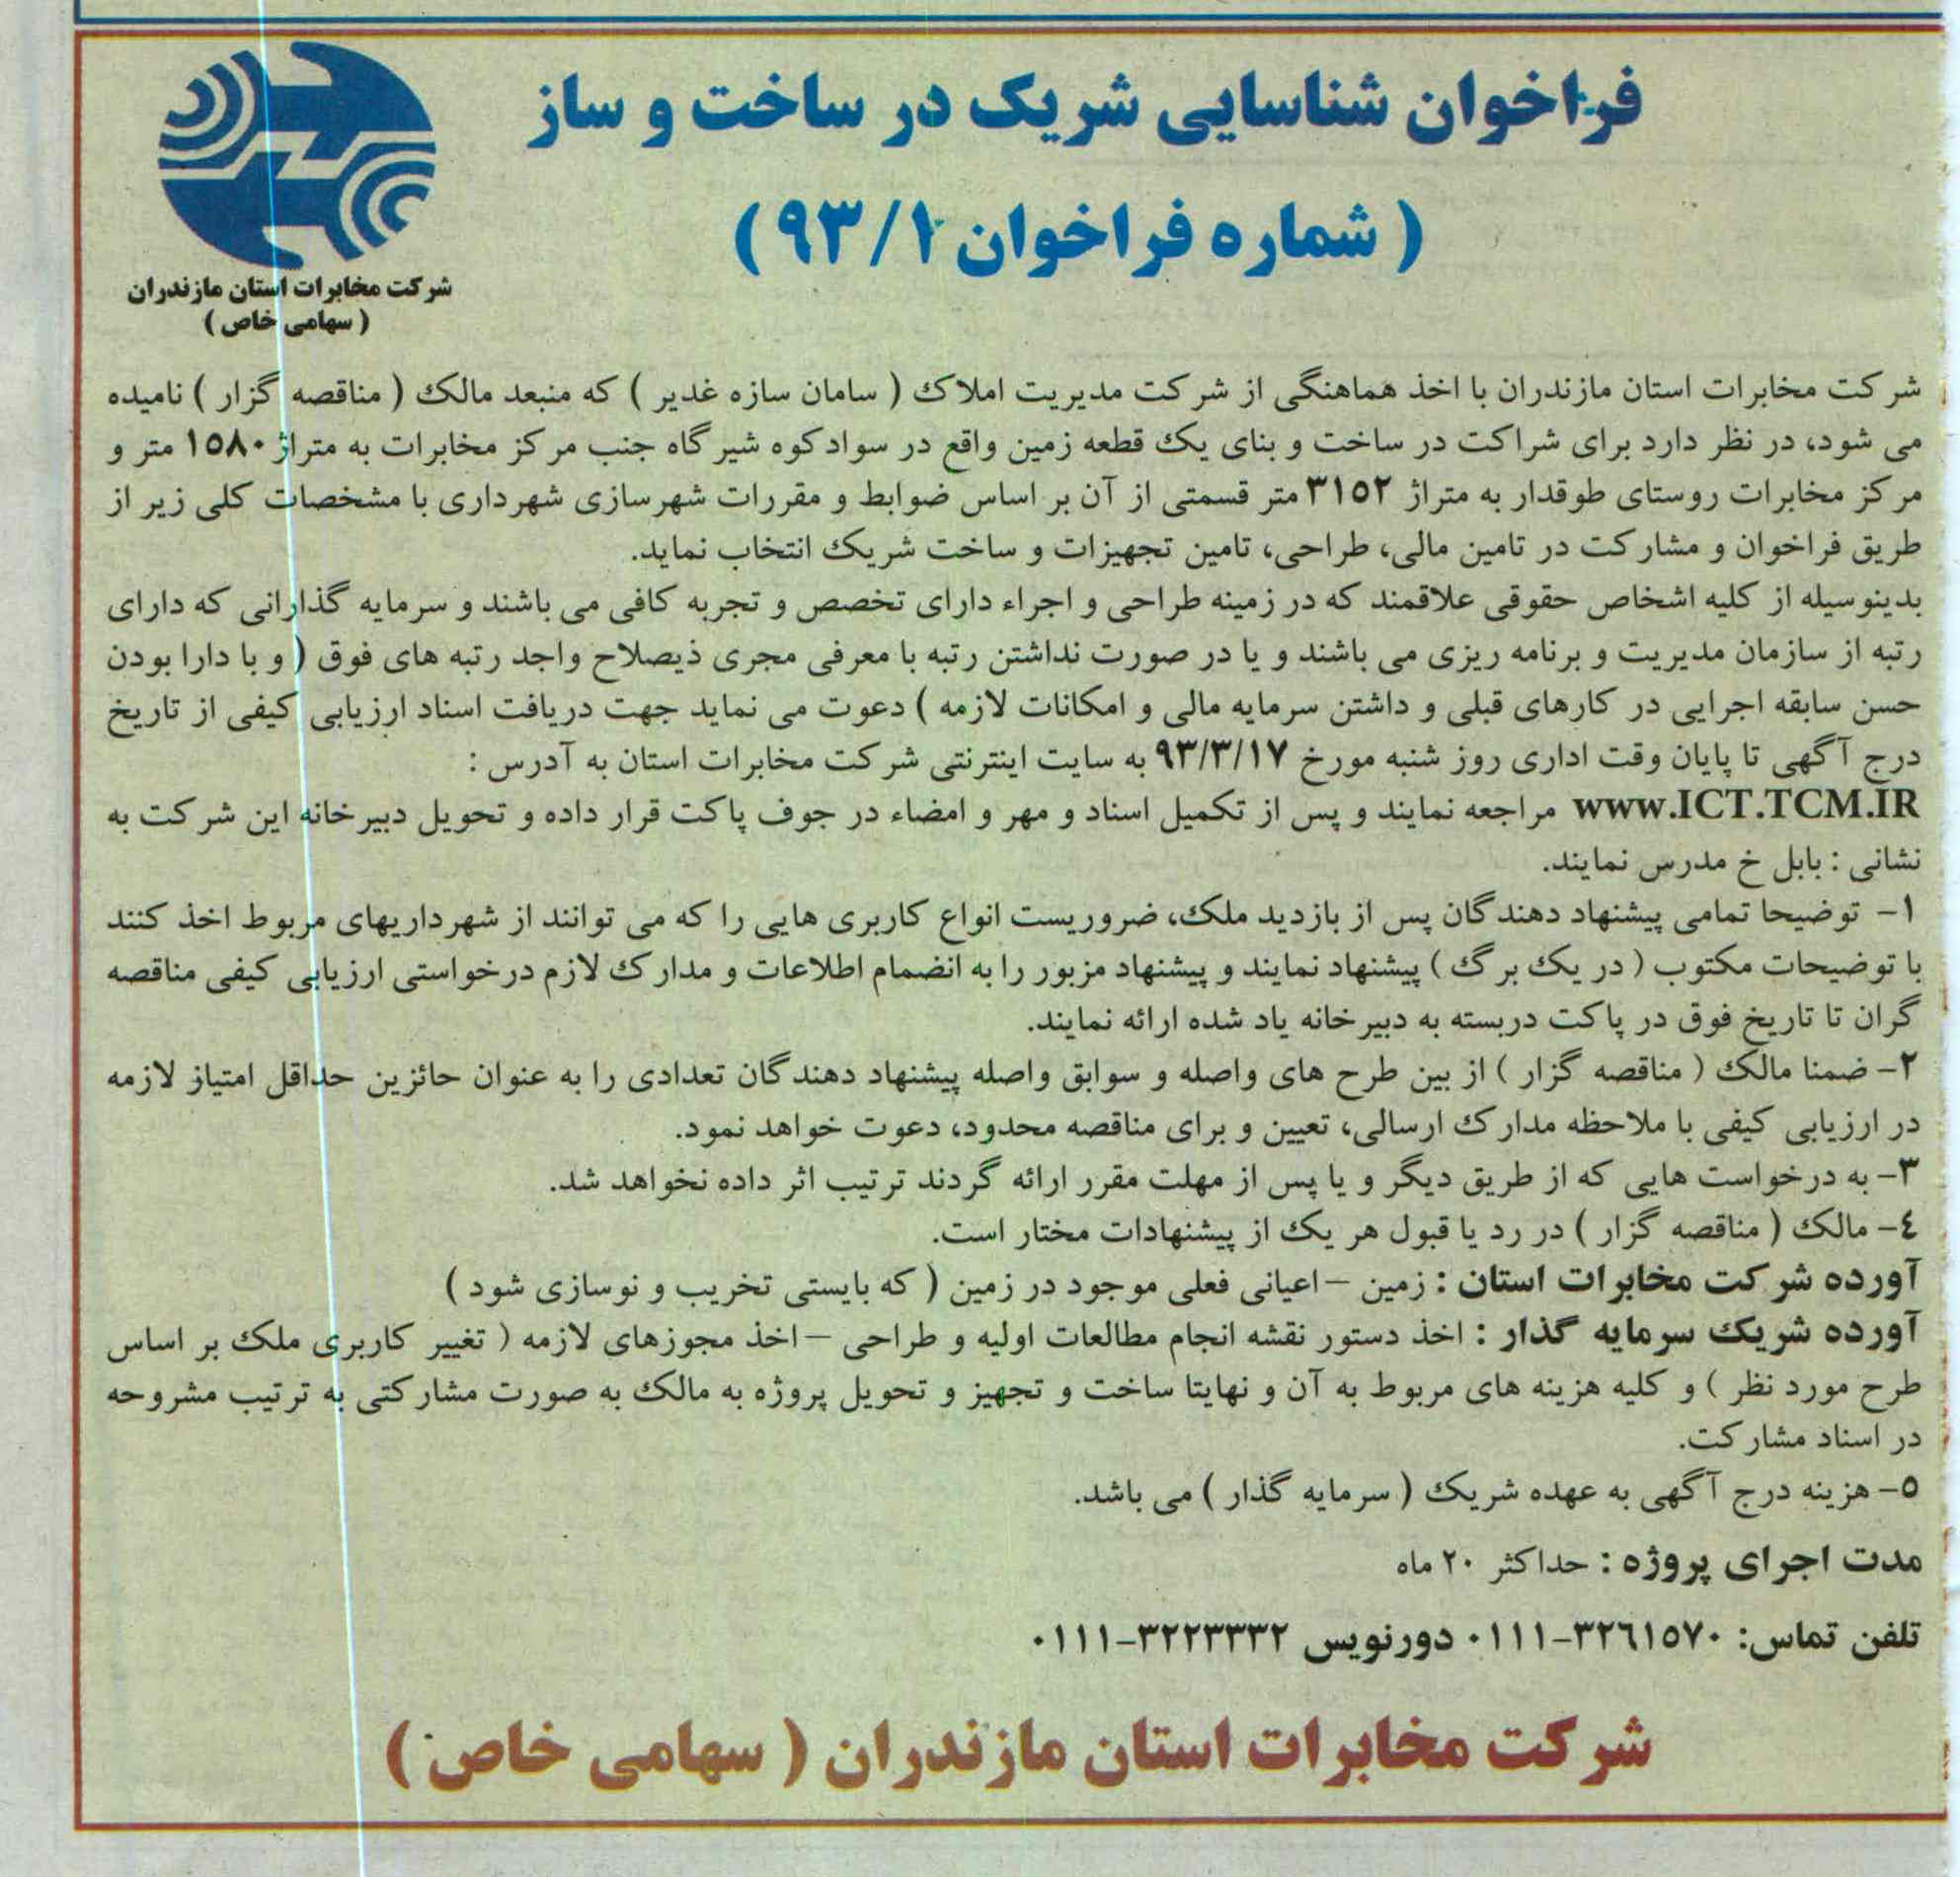 فراخوان شناسایی شریک در ساخت و ساز
( شماره فراخوان ۹۳/۱ )
شرکت مخابرات استان مازندران
( سهامی خاص )
شرکت مخابرات استان مازندران با اخذ هماهنگی از شرکت مدیریت املاک ( سامان سازه غدیر ) که منبعد مالک ( مناقصه گزار ) نامیده
می شود، در نظر دارد برای شراکت در ساخت و بنای یک قطعه زمین واقع در سوادکوه شیرگاه جنب مرکز مخابرات به متراژ ۱۵۸۰ متر و
مرکز مخابرات روستای طوقدار به متراژ ۳۱۵۲ متر قسمتی از آن بر اساس ضوابط و مقررات شهرسازی شهرداری با مشخصات کلی زیر از
طریق فراخوان و مشارکت در تامین مالی، طراحی، تامین تجهیزات و ساخت شریک انتخاب نماید.
بدینوسیله از کلیه اشخاص حقوقی علاقمند که در زمینه طراحی و اجراء دارای تخصص و تجربه کافی می باشند و سرمایه گذارانی که دارای
رتبه از سازمان مدیریت و برنامه ریزی می باشند و یا در صورت نداشتن رتبه با معرفی مجری ذیصلاح واجد رتبه های فوق ( و با دارا بودن
حسن سابقه اجرایی در کارهای قبلی و داشتن سرمایه مالی و امکانات لازمه ) دعوت می نماید جهت دریافت اسناد ارزیابی کیفی از تاریخ
درج آگهی تا پایان وقت اداری روز شنبه مورخ ۹۳/۳/۱۷ به سایت اینترنتی شرکت مخابرات استان به آدرس :
WWW.ICT.TCM.IR مراجعه نمایند و پس از تکمیل اسناد و مهر و امضاء در جوف پاکت قرار داده و تحویل دبیرخانه این شرکت به
نشانی : بابل خ مدرس نمایند.
۱- توضیحا تمامی پیشنهاد دهندگان پس از بازدید ملک، ضروریست انواع کاربری هایی را که می توانند از شهرداریهای مربوط اخذ کنند
با توضیحات مکتوب ( در یک برگ ) پیشنهاد نمایند و پیشنهاد مزبور را به انضمام اطلاعات و مدارک لازم درخواستی ارزیابی کیفی مناقصه
گران تا تاریخ فوق در پاکت دربسته به دبیرخانه یاد شده ارائه نمایند.
۲- ضمنا مالک ( مناقصه گزار ) از بین طرح های واصله و سوابق واصله پیشنهاد دهندگان تعدادی را به عنوان حائزین حداقل امتیاز لازمه
در ارزیابی کیفی با ملاحظه مدارک ارسالی، تعیین و برای مناقصه محدود، دعوت خواهد نمود.
۳- به درخواست هایی که از طریق دیگر و یا پس از مهلت مقرر ارائه گردند ترتیب اثر داده نخواهد شد.
٤- مالک ( مناقصه گزار ) در رد یا قبول هر یک از پیشنهادات مختار است.
آورده شرکت مخابرات استان : زمین –اعیانی فعلی موجود در زمین ( که بایستی تخریب و نوسازی شود )
آورده شریک سرمایه گذار : اخذ دستور نقشه انجام مطالعات اولیه و طراحی –اخذ مجوزهای لازمه ( تغییر کاربری ملک بر اساس
طرح مورد نظر ) و کلیه هزینه های مربوط به آن و نهایتا ساخت و تجهیز و تحویل پروژه به مالک به صورت مشارکتی به ترتیب مشروحه
در اسناد مشارکت.
۵- هزینه درج آگهی به عهده شریک ( سرمایه گذار ) می باشد.
مدت اجرای پروژه : حداکثر ۲۰ ماه
تلفن تماس: ۳۲٦۱۵۷۰-۰۱۱۱ دورنویس ۳۲۲۳۳۳۲-۰۱۱۱
شرکت مخابرات استان مازندران ( سهامی خاص )